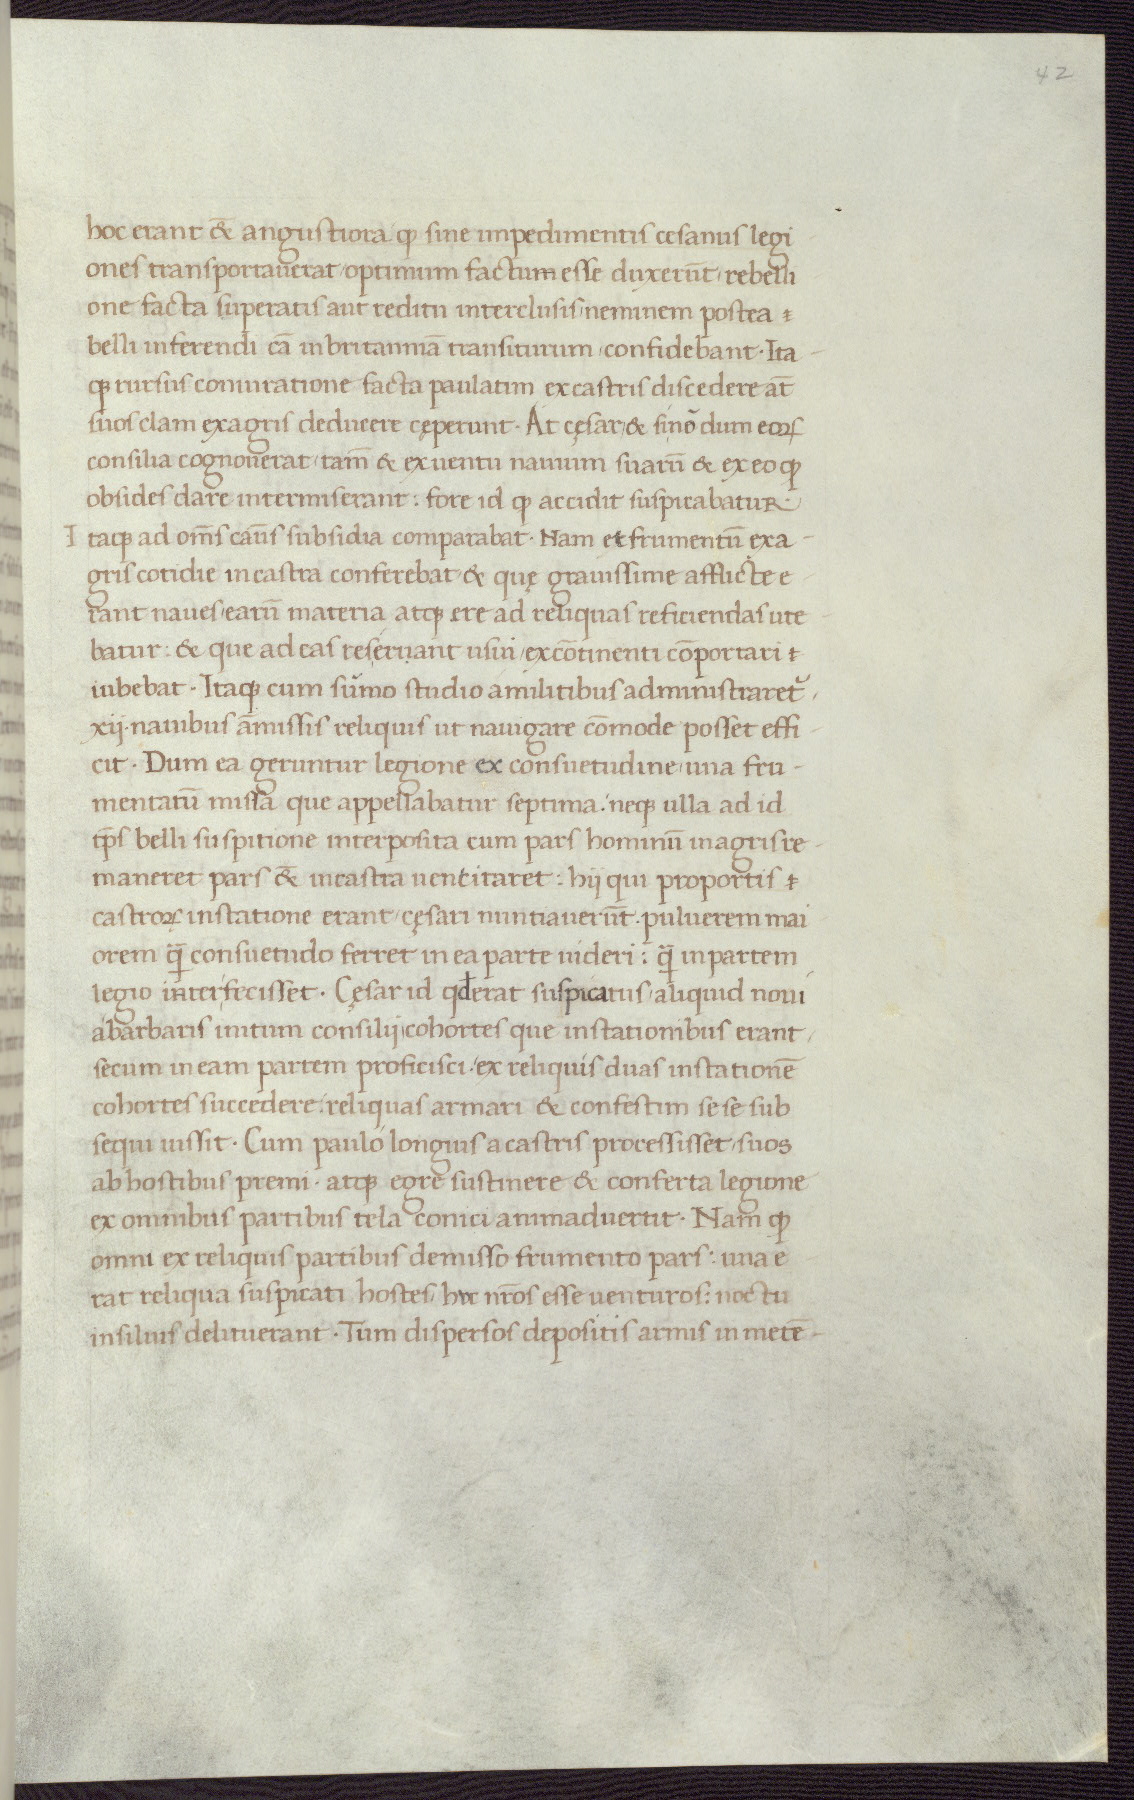 42
hoc erant &̄ angustiora ꝙ sine impedimentis cesarius legi
ones transportauerat, optimum factum esse duxerūt, rebelli
one facta superatis aut reditu interclusis, neminem postea
belli inferendi cā in britanniā transiturum, confidebant. Ita
qꝫ rursus coniuratione facta paulatim ex castris discedere at̄
suos clam ex agris deducere cęperunt. At cęsar, & si nō dum eoꝝ
consilia cognouerat, tam̄ & ex uentu nauium suarū & ex eo ꝙ
obsides dare intermiserant: fore id ꝙ accidit suspicabatur.
Itaqꝫ ad om̄s caūs subsidia comparabat. Nam et frumentū ex a
gris cotidie in castra conferebat, & quę grauissime afflicte e
rant naues, earū materia atqꝫ ere ad reliquas reficiendas ute
batur: & que ad eas res eruant usui, ex cōtinenti cōportari
iubebat. Itaqꝫ cum sūmo studio a militibus administraret᷑,
xij. nauibus āmissis reliquis ut nauigare cōmode posset effi
cit. Dum ea geruntur legione ex consuetudine, una fru
mentatū missa que appellabatur septima: neqꝫ ulla ad id
tp̄s belli suspitione interposita cum pars hominū in agris re
maneret pars &̄ in castra uentitaret: hij qui pro portis
castroꝝ in statione erant, cęsari nuntiauerūt. puluerem mai
orem q̄ consuetudo ferret in ea parte uideri: q̄ in partem
legio interfecisset. Cęsar id qđ erat suspicatus, aliquid noui
a barbaris initum consilij, cohortes que in stationibus erant,
secum in eam partem proficisci. ex reliquis duas in stationē
cohortes succedere: reliquas armari & confestim se se sub
sequi iussit. Cum paulo longius a castris processisset, suos
ab hostibus premi. atqꝫ egre sustinere & conferta legione
ex omnibus partibus tela conici animaduertit. Nam ꝙ
omni ex reliquis partibus demisso frumento pars: una e
rat reliqua suspicati hostes, huc nr̄os esse uenturos: noctu
in siluis delituerant. Tum dispersos depositis armis in metē